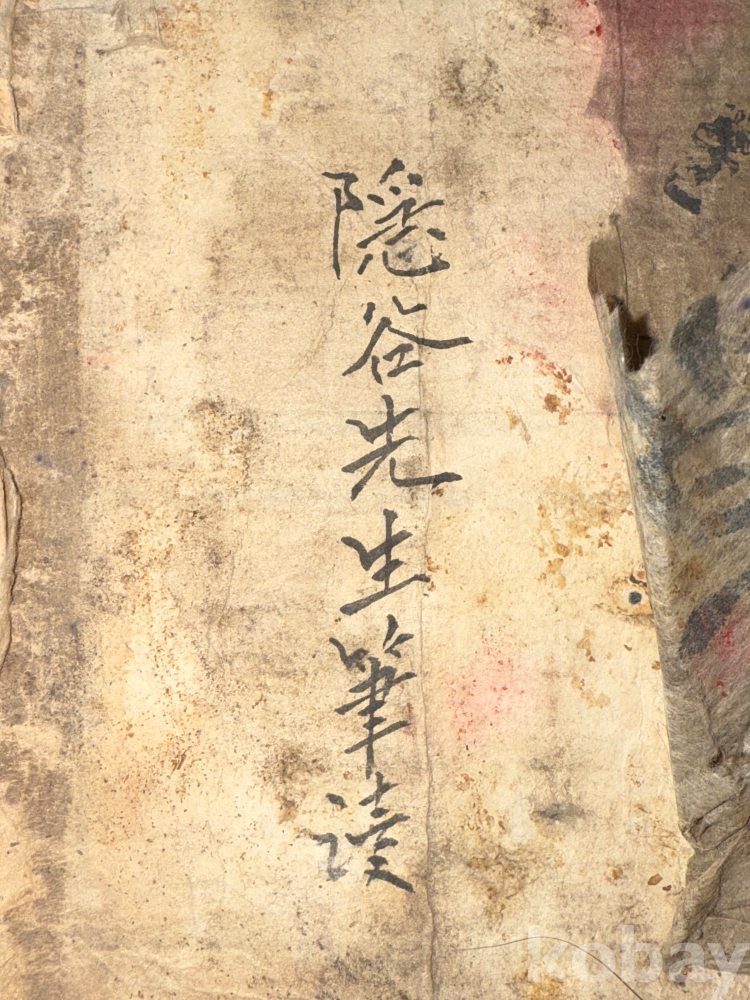 隠谷先生筆読
kobay